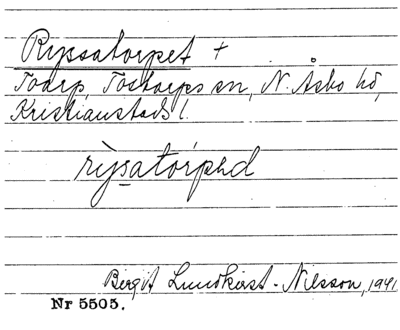 Ryssatorpet +
Toarp, Tostarps sn, N. Åsbo hd,
Kristianstads l.
rỳsatòrpəd
Birgit Lundkvist-Nilsson, 1941
Nr 5505.